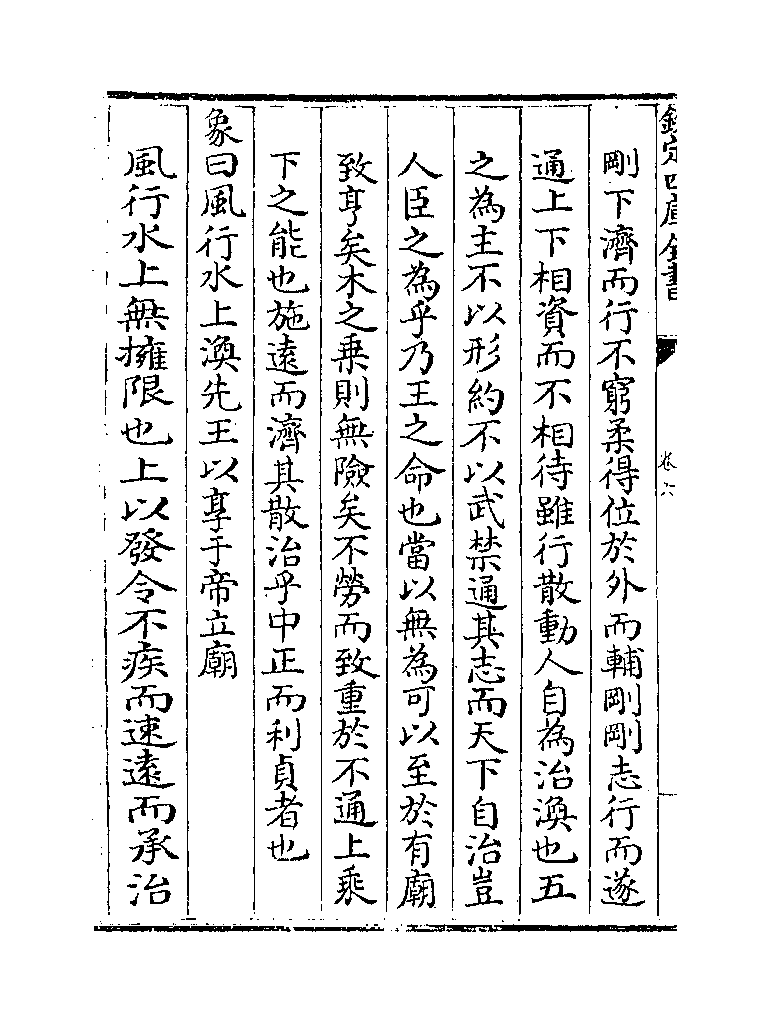 欽定四庫全書
卷六
剛下濟而行不窮柔得位於外而輔剛剛志行而遂
通上下相資而不相待雖行散動人自為治渙也五
之為主不以形約不以武禁通其志而天下自治豈
人臣之為乎乃王之命也當以無為可以至於有廟
致亨矣木之乗則無險矣不勞而致重於不通上乘
下之能也施遠而濟其散治乎中正而利貞者也
象曰風行水上渙先王以享于帝立廟
風行水上無擁限也上以發令不疾而速遠而承治